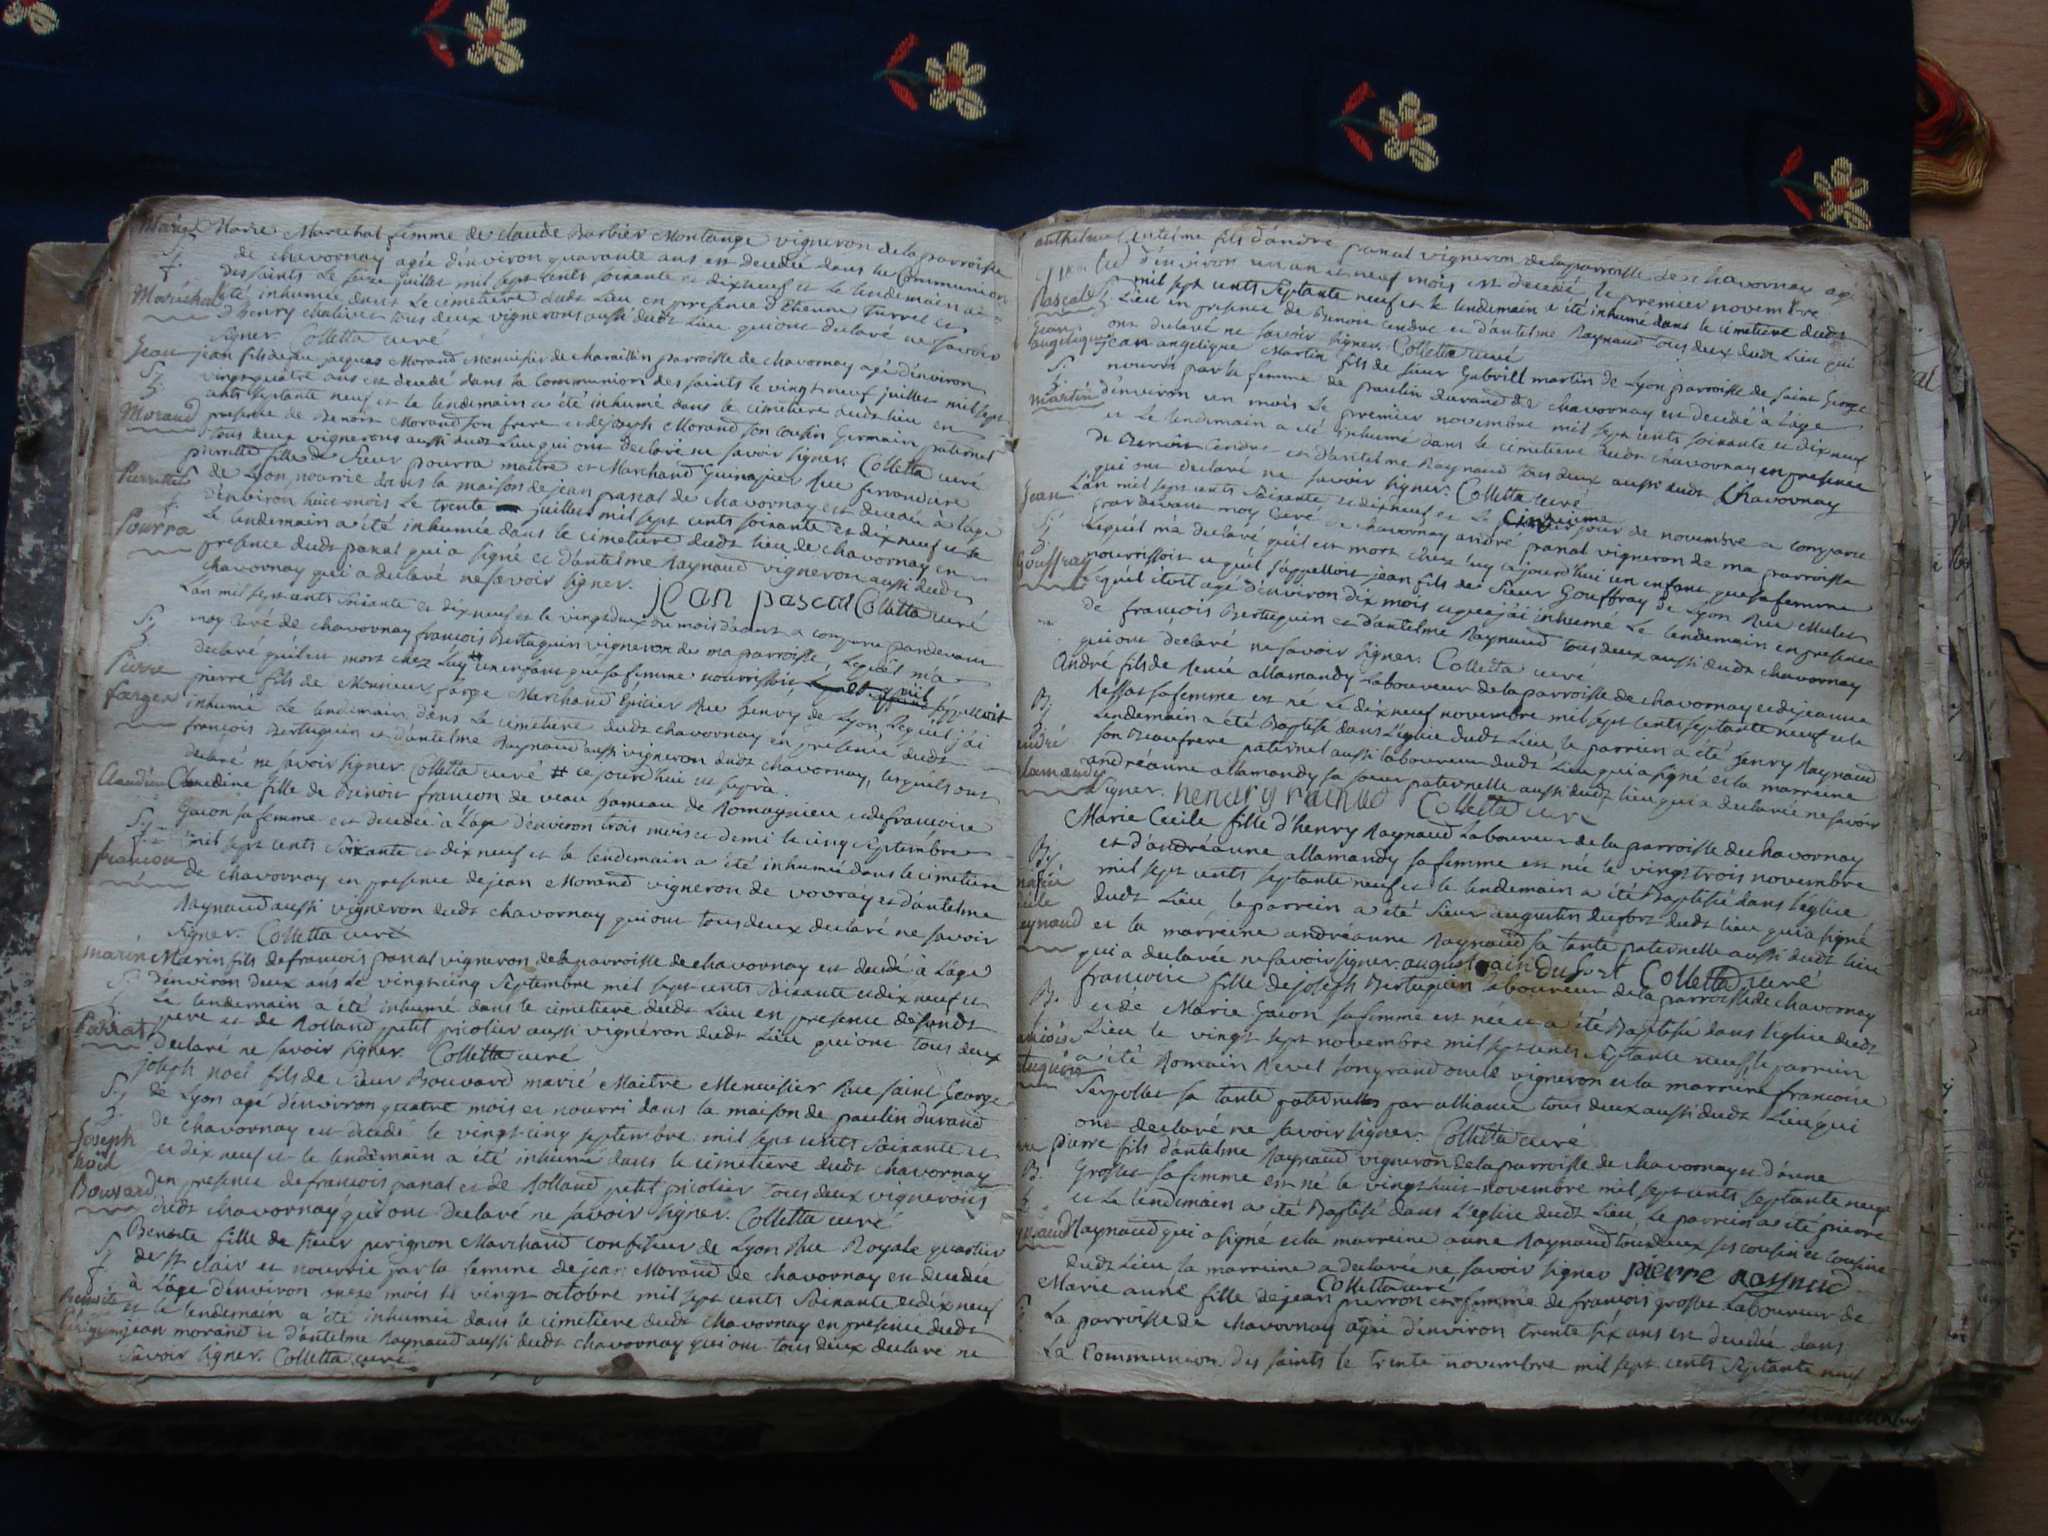 Marie Marechal femme de claude Barbier Montange vigneron de la parroisse
de chavornay agée denviron quarante ans est decedée dans la Communion
des saints le seize juillet mil sept cents soixante et dixneuf et le lendemain a
Maréchal été inhumée dans le cimetiere dudt Lieu en presence d'Etienne Turrel et
d'henry tous deux vignerons aussi dudt Lieu qui ont declaré ne savoir
signer. Colletta curé
Jean jean fils de jacques Morand Menuisier de charaillin parroisse de chavornay agé d'environ
vingt quatre ans est decedé dans la Communion des saints le vingt neuf juillet mil sept
cents septante neuf et le lendemain a été inhumé dans le cimetiere dudt lieu en
Morand presence de Benoit Morand son frere et de joseph Morand son cousin Germain paternel
tous deux vignerons aussi dudt Lieu qui ont declaré ne savoir signer. Colletta curé
pierrette fille de sieur pourra maitre et Marchand Rue ferrandiere
Pierrette de Lyon, nourrie dans la maison de jean pascal de chavornay est decedée a l'age
d'environ huit mois le trente juillet mil sept cents soixante et dix neuf et le
Pourra le lendemain a été inhumée dans le cimetiere dudt lieu de chavornay en
presence dudt panat qui a signé et d'antelme Raynaud vigneron aussi dudt
chavornay qui a declaré ne savoir signer. jean pascal Colletta curé
L'an mil sept cents soixante et dix neuf et le vingt deux du mois d'aout a comparu pardevant
S. moy curé de chavornay francois Bertuquin vigneron de ma parroisse, Lequel m'a
declaré qu'il est mort chez luy # un enfant que sa femme nourrissoit s'appelloit
Pierre pierre fils de Monsieur farge Marchand Epicier Rue henry de Lyon, Lequel j'ai
farges inhumé le lendemain dans le cimetiere dudt chavornay en presence dudt
francois Bertuquin et d'antelme Raynaud aussi vigneron dudt chavornay, lesquels ont
declaré ne savoir signer Colletta curé # ce jourd'hui
Claudine Claudine fille de Benoit francon de veau hameau de Romagnieu et de francoise
Gacon sa femme est decedée à l'age d'environ trois mois et demi le cinq septembre
mil sept cents soixante et dix neuf et le lendemain a été inhumée dans le cimetiere
francon de chavornay en presence de jean Morand vigneron de vovray et d'antelme
Raynaud aussi vigneron dudt chavornay qui ont tous deux declaré ne savoir
signer. Colletta curé
marin Marin fils de francois panat vigneron de la parroisse de chavornay est decedé a l'age
d'environ deux ans le vingt cinq Septembre mil sept cents soixante et dix neuf et
le lendemain a été inhumé dans le cimetiere dudt Lieu en presence de sondt
pere et de Rolland petit picolier aussi vigneron dudt Lieu qui ont tous deux
declaré ne savoir signer. Colletta curé
joseph noel fils de sieur Bouvard marié Maitre Menuisier Rue saint George
S. de Lyon agé d'environ quatre mois et nourri dans la maison de paulin durand
de chavornay est decedé le vingt cinq septembre mil sept cents soixante et
Joseph et dix neuf et le lendemain a été inhumé dans le cimetiere dudt chavornay
noël
Bouvard en presence de francois panat et de Rolland petit picolier tous deux vignerons
dudt chavornay qui ont declaré ne savoir signer. Colletta curé
Benoite fille de sieur perignon Marchand confiseur de Lyon Rue Royale quartier
de st clair et nourrie par la femme de jean Morand de chavornay est decedée
à l'age d'environ onze mois le vingt octobre mil sept cents soixante et dix neuf
Benoite et le lendemain a été inhumée dans le cimetiere dudt chavornay en presence dudt
perignon jean morand et d'antelme Raynaud aussi dudt chavornay qui ont tous deux declaré ne
savoir signer. Colletta curé
anthelme antelme fils d'andre panat vigneron de la parroisse de chavornay agé
d'environ un an et neuf mois est decedé le premier novembre
Pascal mil sept cents septante neuf et le lendemain a été inhumé dans le cimetiere dudt
Lieu en presence de Benoit Cendre et d'antelme Raynaud tous deux dudt Lieu qui
jean ont declaré ne savoir signer. Colletta curé
angelique jean angelique Martin fils de sieur Gabriel martin de Lyon parroisse de saint George
S. nourri par la femme de paulin durand de chavornay est decedé à l'age
martin d'environ un mois le premier novembre mil sept cents soixante et dix neuf
et le lendemain a été inhumé dans le cimetiere dudt chavornay en presence
de Benoit Cendre et d'antelme Raynaud tous deux aussi dudt Chavornay
qui ont declaré ne savoir signer. Colletta curé
Jean L'an mil sept cents soixante et dix neuf et le cinquieme jour de novembre a comparu
pardevant moy curé de chavornay andré panat vigneron de ma parroisse
lequel m'a declaré qu'il est mort chez luy ce jourd'hui un enfant que sa femme
Gouffray nourrissoit et qu'il s'appelloit jean fils de sieur Gouffray de Lyon Rue Mulet
et qu'il étoit agé d'environ dix mois et que j'ai inhumé le lendemain en presence
de francois Bertuquin et d'antelme Raynaud tous deux aussi dudt chavornay
qui ont declaré ne savoir signer. Colletta curé
André fils de René allamandy laboureur de la parroisse de chavornay et de jeanne
B. Ressat sa femme est né le dix neuf novembre mil sept cents septante neuf et le
lendemain a été Baptisé dans l'Eglise dudt Lieu, le parrein a été henry Raynaud
andré son Beaufrere paternel aussi laboureur dudt Lieu qui a signé et la marreine
allamandy andréanne allamandy sa soeur paternelle aussi dudt lieu qui a declarée ne savoir
signer. henary rainud Colletta curé
Marie Cecile fille d'henry Raynaud laboureur de la parroisse de chavornay
B. et d'andréanne allamandy sa femme est née le vingt trois novembre
marie mil sept cents septante neuf et le lendemain a été Baptisée dans l'eglise
dudt Lieu le parrein a été sieur augustin dufort dudt lieu qui a signé
Reynaud et la marreine andréanne Raynaud sa tante paternelle aussi dudt lieu
qui a declarée ne savoir signer. augustain dufort Colletta curé
B. francoise fille de joseph Bertuquin laboureur de la parroisse de chavornay
et de Marie Gacon sa femme est née et a été Baptisée dans l'eglise dudt
Lieu le vingt sept novembre mil sept cents septante neuf, le parrein
a été Romain Revel son grand oncle vigneron et la marreine francoise
Serpollet sa tante paternelle par alliance tous deux aussi dudt Lieu qui
ont declaré ne savoir signer. Colletta curé
pierre fils d'antelme Raynaud vigneron de la parroisse de chavornay et d'anne
B. Grosset sa femme est né le vingt huit novembre mil sept cents septante neuf
et le lendemain a été Baptisé dans l'eglise dudt Lieu, le parrein a été pierre
Raynaud qui a signé et la marreine anne Raynaud tous deux ses cousin et cousine
dudt Lieu la marreine a declarée ne savoir signer pierre raynud
Colletta curé
Marie anne fille de jean pierron et femme de francois grosset laboureur de
la parroisse de chavornay agée d'environ trente six ans est decedée dans
la Communion des saints le trente novembre mil sept cents septante neuf